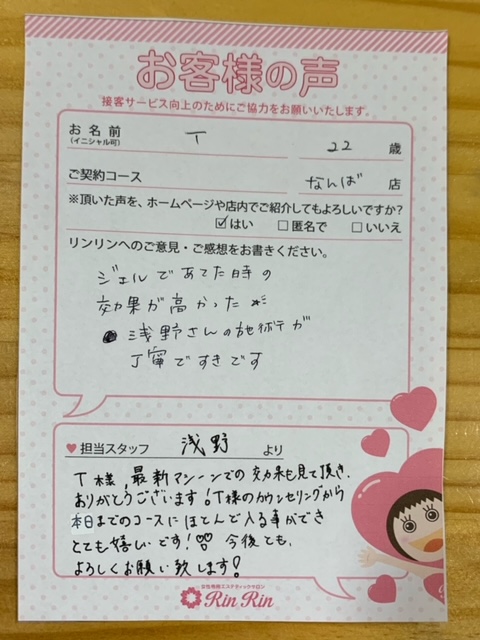 お客様の声
接客サービス向上のためにご協力をお願いいたします。
お名前 T 22 歳
(イニシャル可)
ご契約コース なんば 店
※頂いた声を、ホームページや店内でご紹介してもよろしいですか？
☑はい □匿名で □いいえ
リンリンへのご意見・ご感想をお書きください。
ジェルであてた時の
効果が高かった
浅野さんの施術が
丁寧ですきです
♥担当スタッフ 浅野 より
T様、最新マシーンでの効果も見て頂き、
ありがとうございます！T様のカウンセリングから
本日までのコースにほとんど入る事ができ
とても嬉しいです！♡♡ 今後とも、
よろしくお願い致します！
女性専用エステティックサロン
Rin Rin